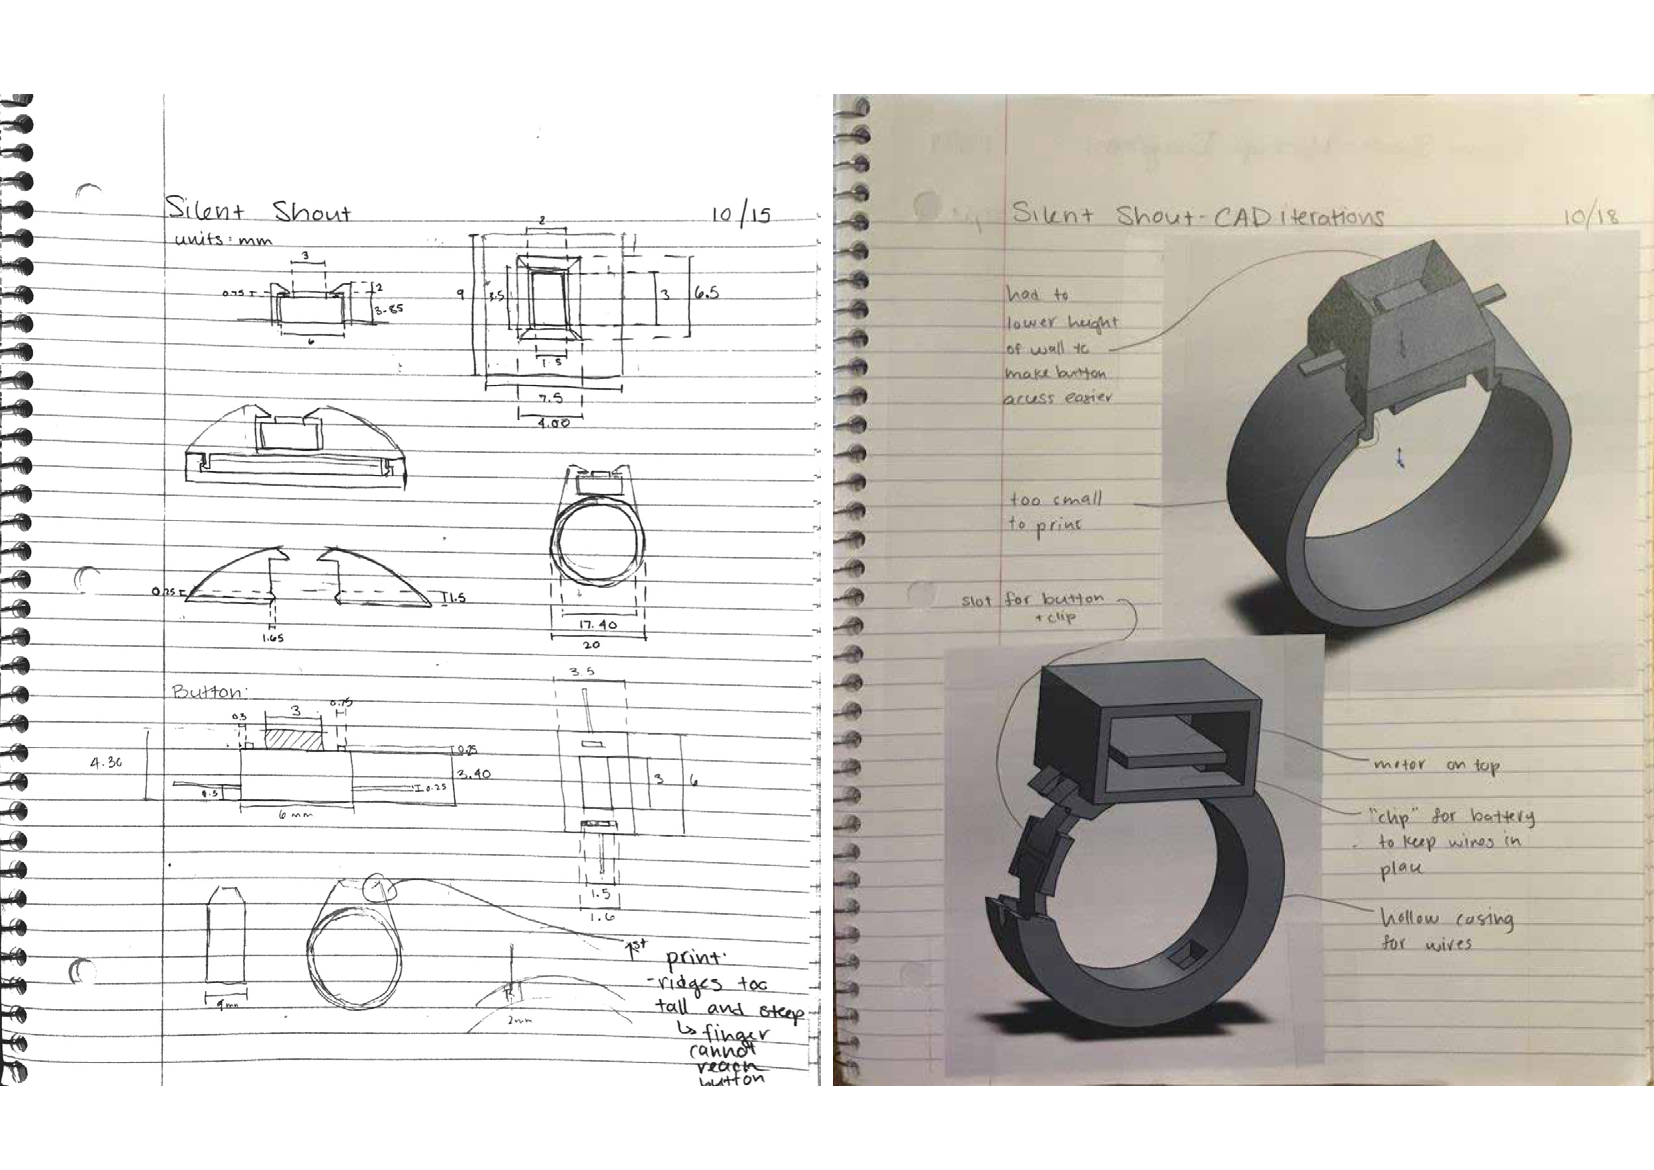 Silent Shout 10/15
units: mm
3
0.75
2
3.85
6
2
9
3.5
3
6.5
1.5
7.5
4.00
0.25
1.5
1.65
17.40
20
Button:
0.3
3
0.75
4.36
0.25
3.40
0.25
6 mm
3.5
3
6
1.5
1.6
9mm
2mm
1st
print:
-ridges too
tall and steep
↳ finger
cannot
reach
button
Silent Shout - CAD iterations 10/18
had to
lower height
of wall to
make button
acess easier
too small
to print
slot for button
+ clip
motor on top
"clip" for battery
to keep wires in
place
hollow casing
for wires